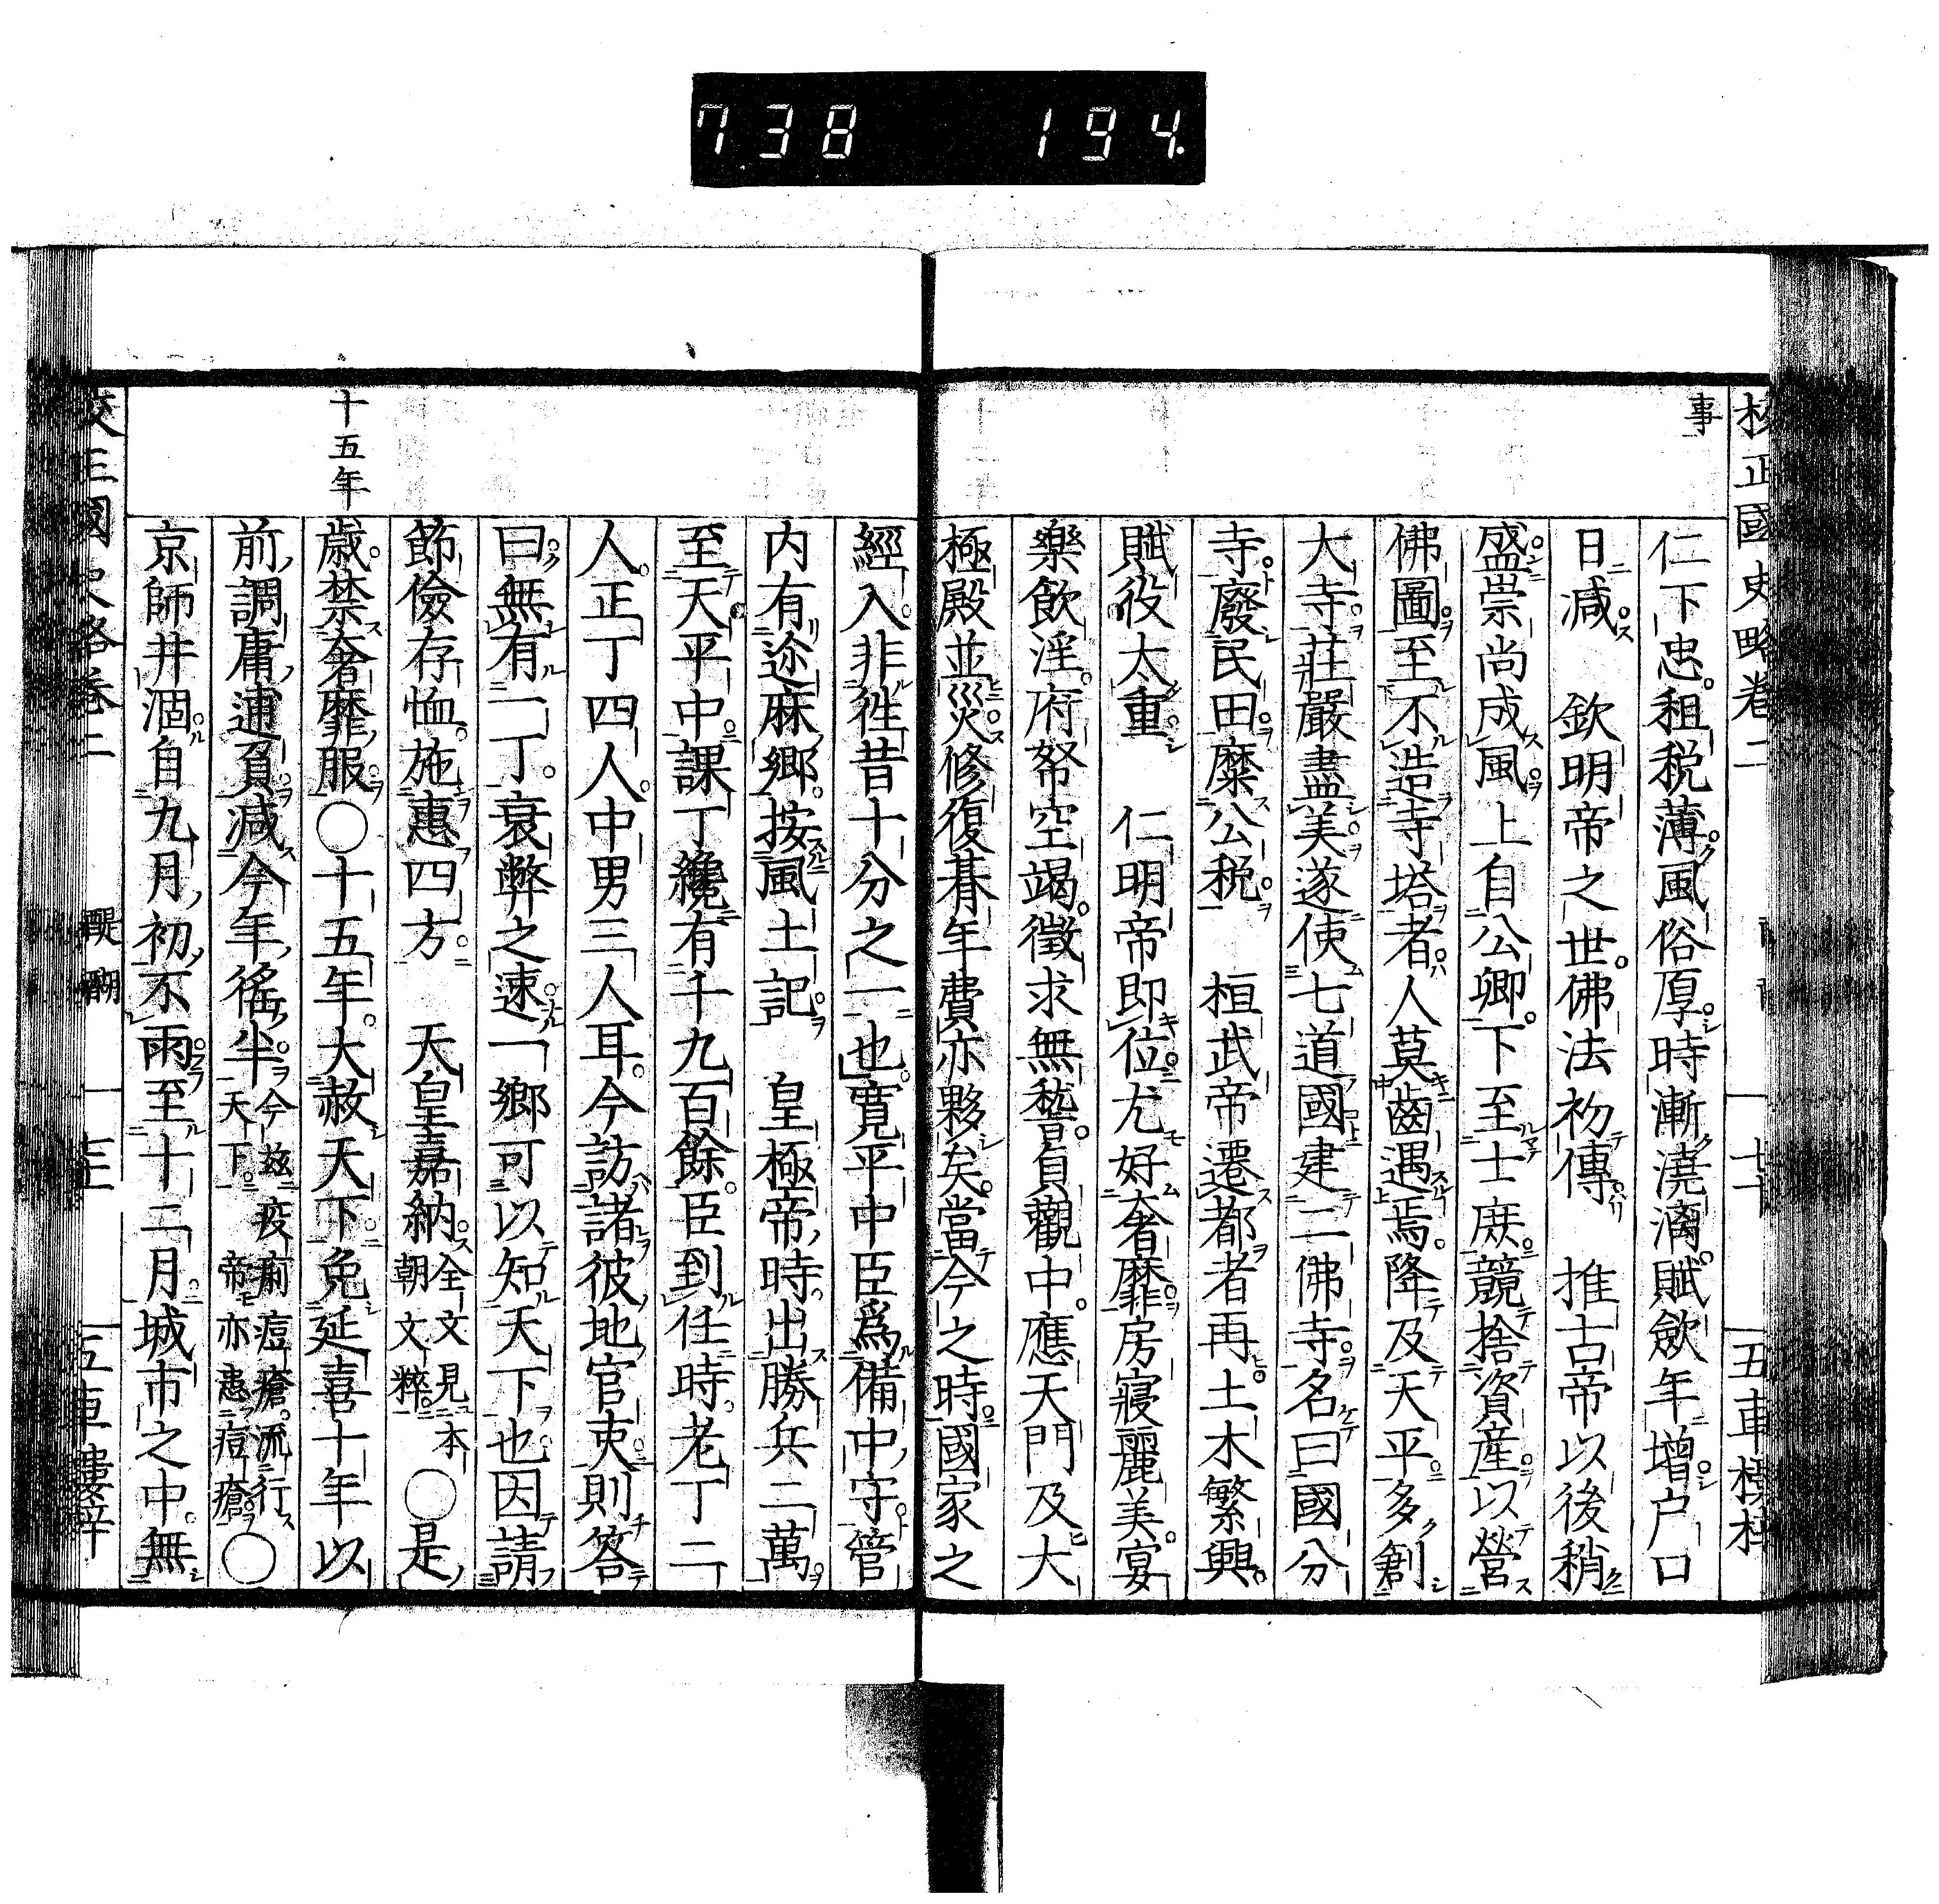 738 194.
校正國史略卷二
五車樓梓
事
仁下忠租税薄風俗厚時漸澆漓賦斂年増户口
日減 欽明帝之世佛法初傳 推古帝以後稍
盛崇尚成風上自公卿下至士庶競捨資産以營
佛圖至不造寺塔者人莫齒遇焉降及天平多創
大寺莊嚴盡美遂使七道國建二佛寺名曰國分
寺廢民田糜公税 桓武帝遷都者再土木繁興
賦役太重 仁明帝即位尤好奢靡房寢麗美宴
樂飲淫府帑空竭徵求無藝貞觀中應天門及大
極殿並災修復朞年費亦夥矣當今之時國家之
經入非徃昔十分之一也寛平中臣爲備中守管
内有迩麻郷按風土記 皇極帝時出勝兵二萬
至天平中課丁纔有千九百餘臣到任時老丁二
人正丁四人中男三人耳今訪諸彼地官吏則答
曰無有一丁衰弊之速一郷可以知天下也因請
節儉存恤施惠四方 天皇嘉納全文見本朝文粹○是
十五年
歳禁奢靡服○十五年大赦天下免延喜十年以
前調庸逋負減今年徭半今茲疫痢痘瘡流行天下帝亦患痘瘡○
京師井涸自九月初不雨至十二月城市之中無
校正國史略卷二 醍醐 五車樓梓